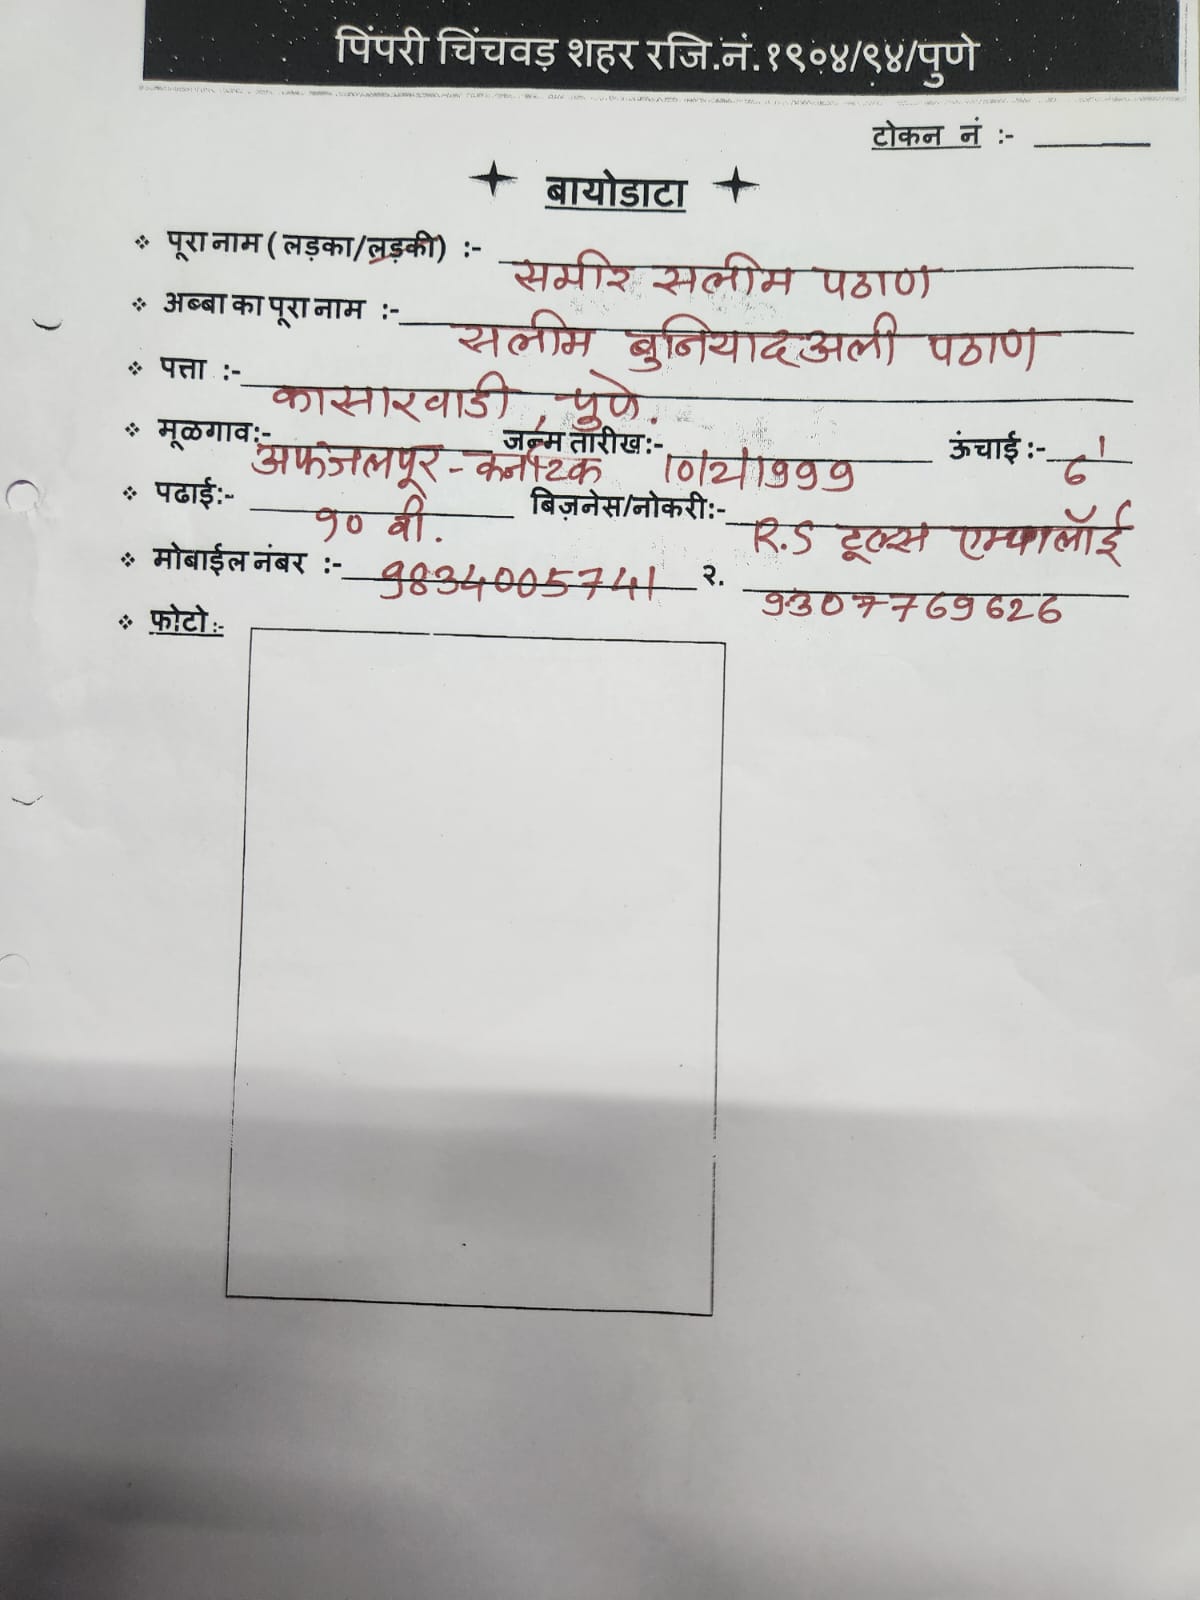 पिंपरी चिंचवड़ शहर रजि.नं.१९०४/९४/पुणे
टोकन नं :-
बायोडाटा
पूरा नाम ( लड़का/लड़की) :- समीर सलीम पठाण
अब्बा का पूरा नाम :- सलीम बुनियादअली पठाण
पत्ता :- कासारवाडी, पुणे.
मूळगाव:- अफजलपूर - कर्नाटक जन्म तारीख:- 10/2/1999 ऊंचाई :- ६'
पढाई:- १० वी. बिज़नेस/नोकरी:- R.S टूल्स एम्पलॉई
मोबाईल नंबर :- 9834005741 २. 9307769626
फोटो:-